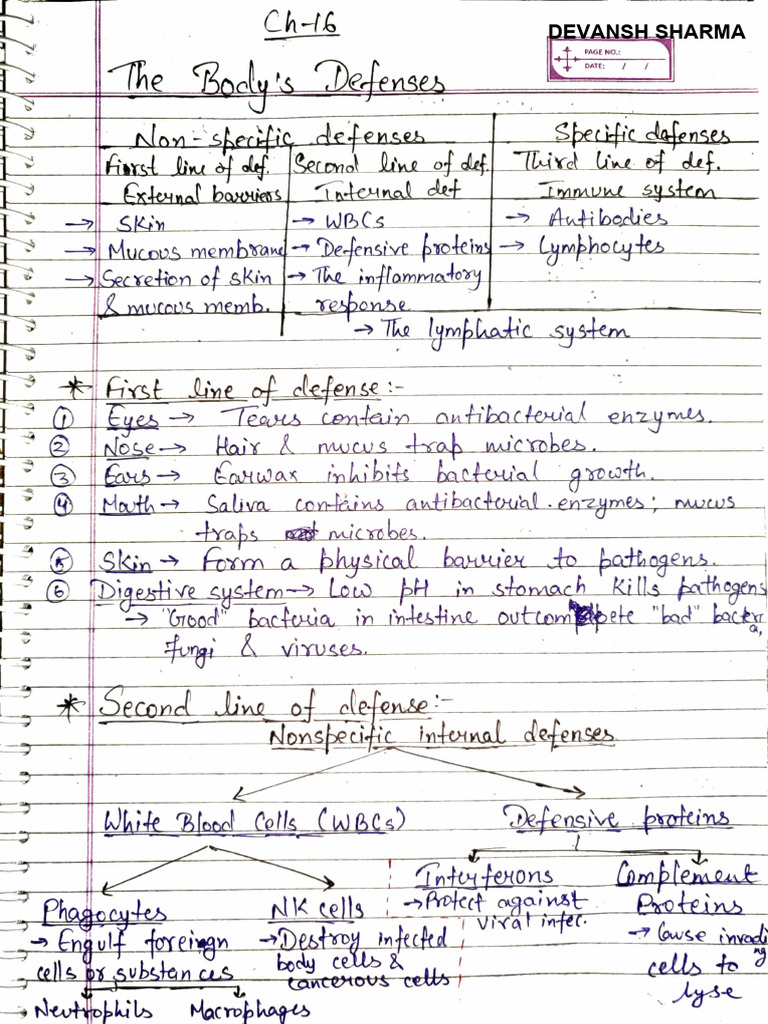 Ch-16
DEVANSH SHARMA
PAGE NO.:
DATE: / /
The Body's Defenses
Non-specific defenses
Specific defenses
First line of def.
Second line of def.
Third line of def.
External barriers
Internal def
Immune system
→ Skin
→ WBCs
→ Antibodies
→ Mucous membrane
→ Defensive proteins
→ Lymphocytes
→ Secretion of skin
→ The inflammatory
& mucous memb.
response
→ The lymphatic system
* First line of defense:-
① Eyes → Tears contain antibacterial enzymes.
② Nose → Hair & mucus trap microbes.
③ Ears → Earwax inhibits bacterial growth.
④ Mouth → Saliva contains antibacterial enzymes; mucus
traps microbes.
⑤ Skin → Form a physical barrier to pathogens.
⑥ Digestive system → Low pH in stomach kills pathogens
→ "Good" bacteria in intestine outcompete "bad" bacteria,
fungi & viruses.
* Second line of defense:-
Nonspecific internal defenses
White Blood Cells (WBCs)
Defensive proteins
Phagocytes
→ Engulf foreign
cells or substances
Neutrophils
Macrophages
NK cells
→ Destroy infected
body cells &
cancerous cells
Interferons
→ Protect against
viral infec.
Complement
Proteins
→ Cause invading
cells to
lyse